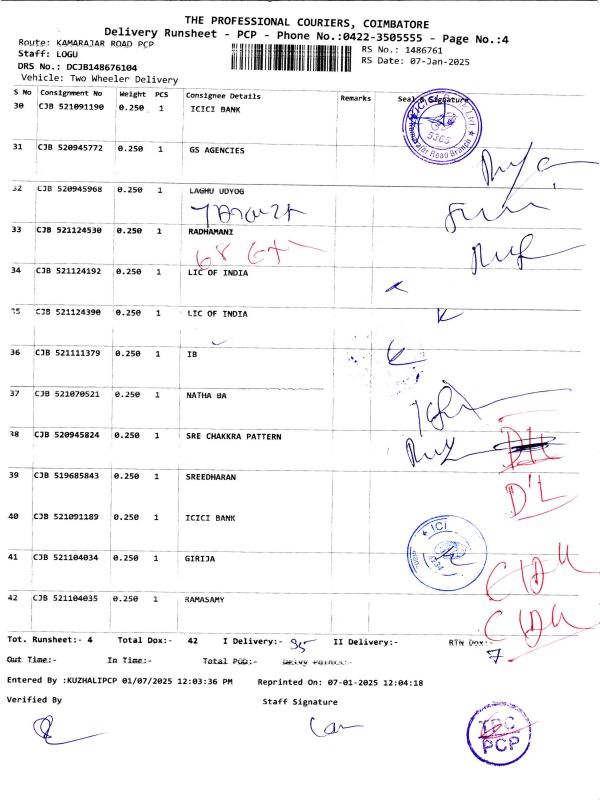 THE PROFESSIONAL COURIERS, COIMBATORE
Delivery Runsheet - PCP - Phone No.:0422-3505555 - Page No.:4
Route: KAMARAJAR ROAD PCP
RS No.: 1486761
Staff: LOGU
RS Date: 07-Jan-2025
DRS No.: DCJB148676104
Vehicle: Two Wheeler Delivery
S No Consignment No Weight PCS Consignee Details Remarks Seal & Signature
30 CJB 521091190 0.250 1 ICICI BANK
5305
31 CJB 520945772 0.250 1 GS AGENCIES
32 CJB 520945968 0.250 1 LAGHU UDYOG
33 CJB 521124530 0.250 1 RADHAMANI
34 CJB 521124192 0.250 1 LIC OF INDIA
35 CJB 521124390 0.250 1 LIC OF INDIA
36 CJB 521111379 0.250 1 IB
37 CJB 521070521 0.250 1 NATHA BA
38 CJB 520945824 0.250 1 SRE CHAKKRA PATTERN
39 CJB 519685843 0.250 1 SREEDHARAN
D'L
40 CJB 521091189 0.250 1 ICICI BANK
ICI
41 CJB 521104034 0.250 1 GIRIJA
42 CJB 521104035 0.250 1 RAMASAMY
Tot. Runsheet:- 4 Total Dox:- 42 I Delivery:- 35 II Delivery:- RTN Dox:- 7
Out Time:- In Time:- Total POD:- Delvy Points:-
Entered By :KUZHALIPCP 01/07/2025 12:03:36 PM Reprinted On: 07-01-2025 12:04:18
Verified By Staff Signature
TPC
PCP